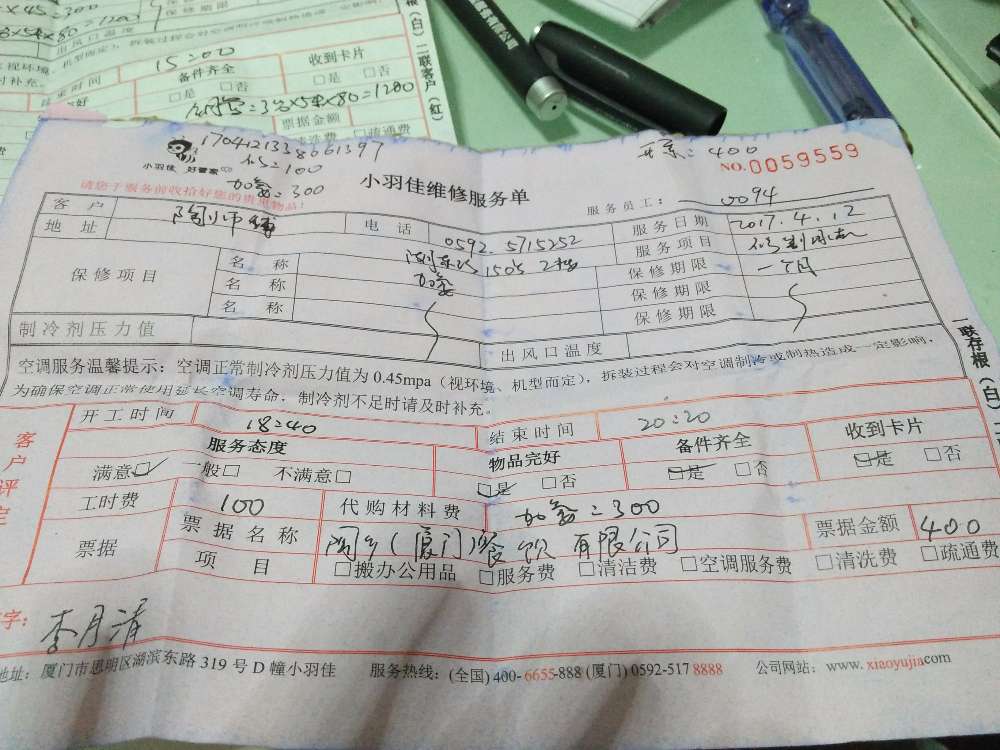 ×45=300
出风口温度
15:00
备件齐全
收到卡片
□是 □否
□是 □否
=3台×5×80=1200
票据金额
清洗费 □疏通费
根（白）二联客户（红）
1704121338061397
小羽佳 好管家
=100
加氟=300
请您于服务前收拾好您的贵重物品！
小羽佳维修服务单
开票：400
NO.0059559
服务员工：0094
客户 陶小帅铺 电话 0592.5715252 服务日期 2017.4.12
地址 服务项目
保修项目 名称 保修期限 一个月
名称 加氟 保修期限
名称 保修期限
制冷剂压力值 出风口温度
空调服务温馨提示：空调正常制冷剂压力值为0.45mpa（视环境、机型而定），拆装过程会对空调制冷或制热造成一定影响，
为确保空调正常使用延长空调寿命，制冷剂不足时请及时补充。
一联存根（白）二
客户评定
开工时间 18:40 结束时间 20:20
服务态度 物品完好 备件齐全 收到卡片
满意☑ 一般□ 不满意□ ☑是 □否 ☑是 □否 ☑是 □否
工时费 100 代购材料费 加氟=300
票据 票据名称 陶乡（厦门）餐饮有限公司 票据金额 400
项目 □搬办公用品 □服务费 □清洁费 □空调服务费 □清洗费 □疏通费
字：李月清
地址：厦门市思明区湖滨东路319号D幢小羽佳 服务热线：(全国)400-6655-888 (厦门)0592-517 8888 公司网站：www.xiaoyujia.com